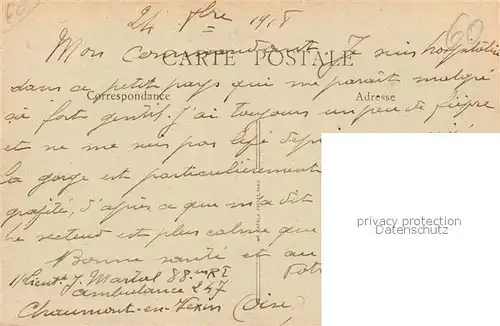 24 7bre 1918
60
Mon commandant, Je suis hospitalisé
CARTE POSTALE
dans ce petit pays qui me paraît malgré
Correspondance
Adresse
ça fort gentil. J'ai toujours un peu de fièvre
et ne me suis pas levé
la gorge est particulièrement
d'après ce que m'a dit
le secteur est plus calme que
Bonne santé et au
privacy protection
www.delcampe
Lieut J. Martal 88me RI
ambulance 247
Chaumont-en-Vexin (Oise)